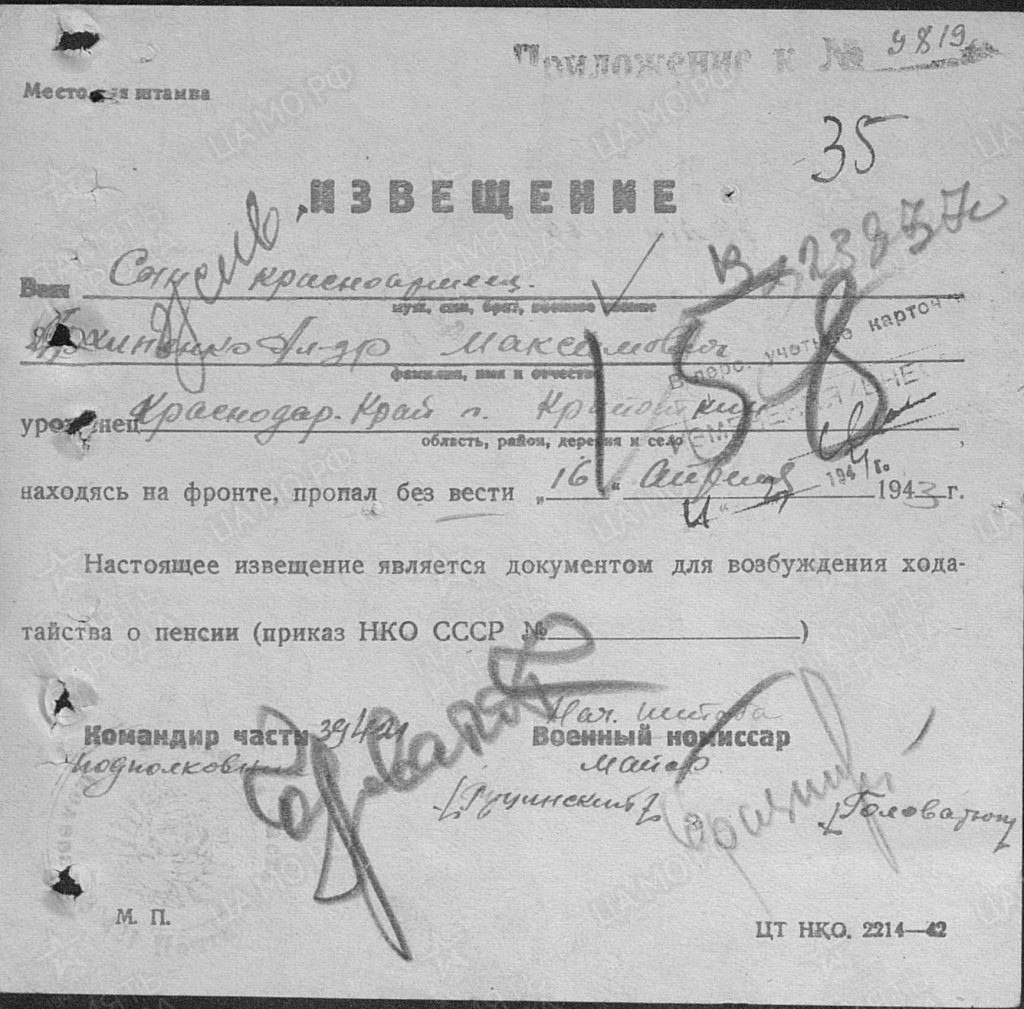 Приложение к № 9819
Место для штампа
35
ИЗВЕЩЕНИЕ
В-23877
Ваш Сын красноармеец.
муж, сын, брат, военное звание
Ал-др Максимович
фамилия, имя и отчество
158
В перс. учетные карточки
уроженец Краснодар. Край г. Кропоткин
область, район, деревня и село
находясь на фронте, пропал без вести „16“ Апреля 1943 г.
1944 г.
Настоящее извещение является документом для возбуждения хода-
тайства о пенсии (приказ НКО СССР № )
Нач. штаба
Командир части Военный комиссар
подполковник Майор
[Гущинский] [Головатюк]
М. П.
ЦТ НКО. 2214—42
ЦАМО.РФ
ПАМЯТЬ НАРОДА